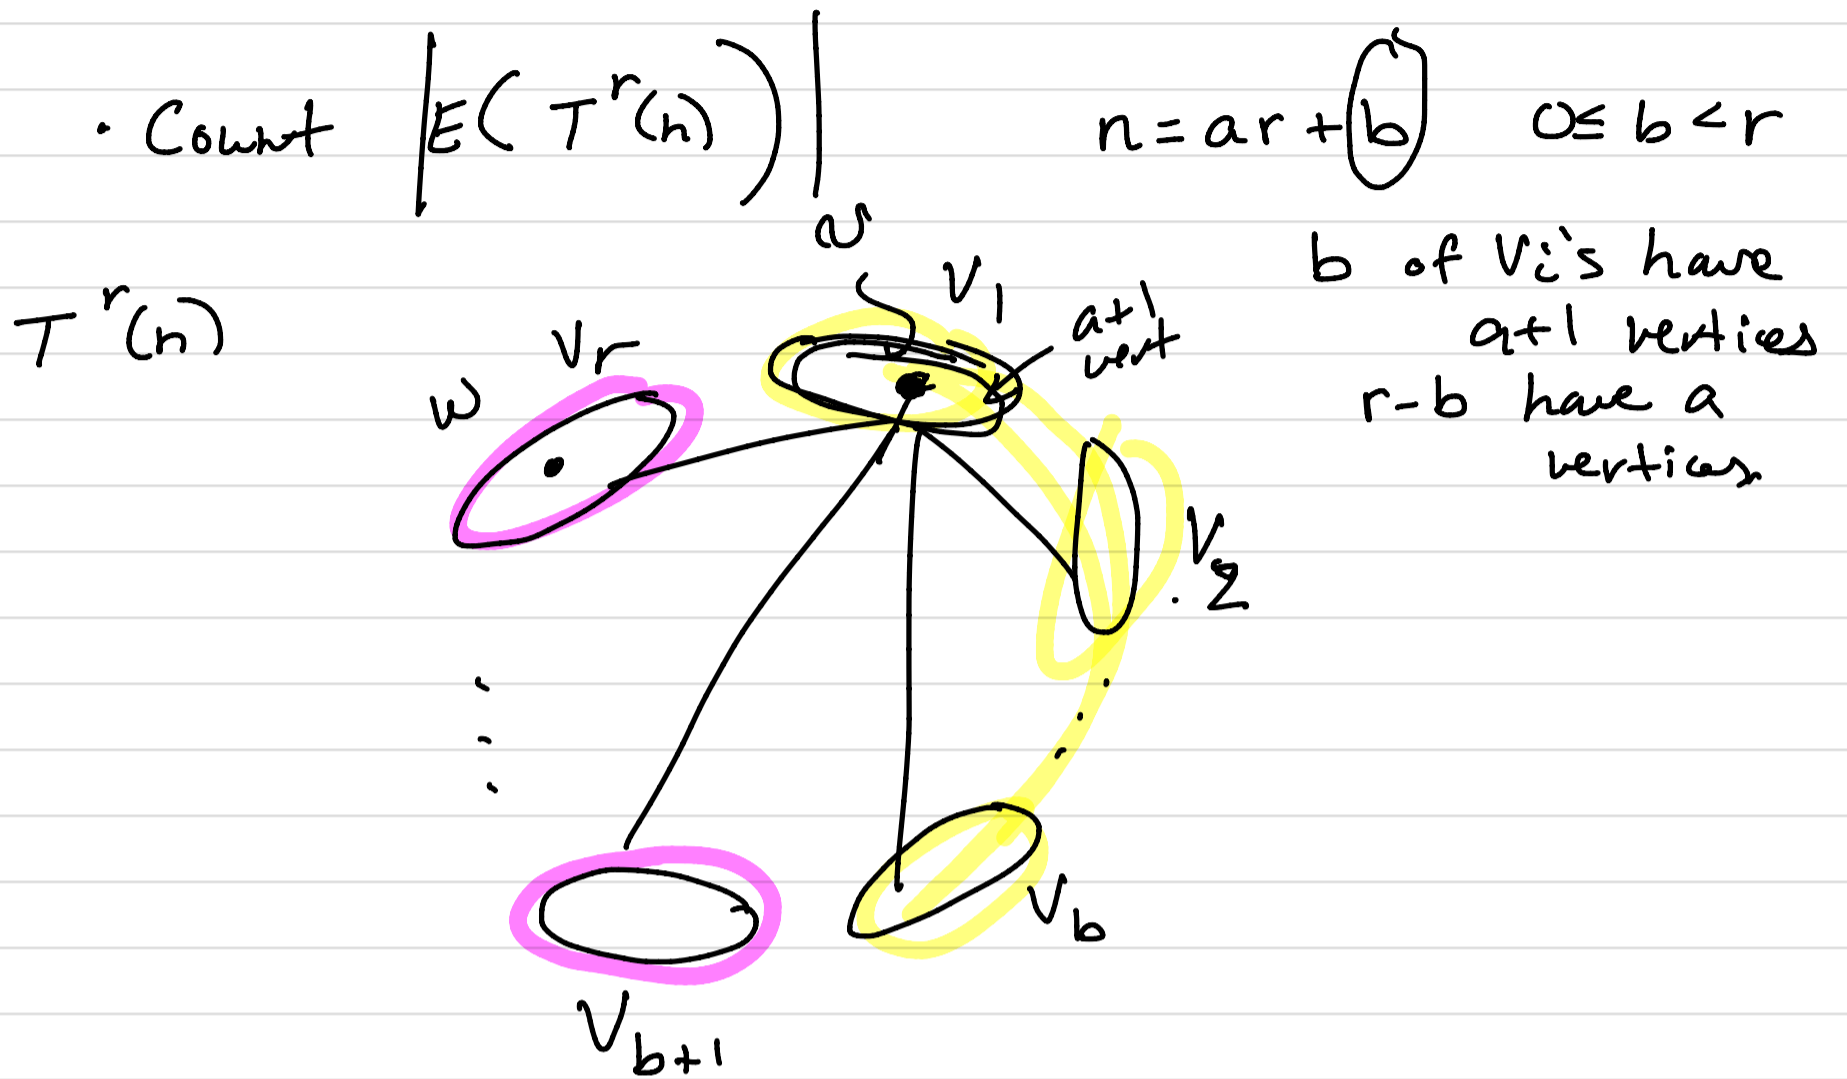 · Count |E(T^r(n))| n = ar + b 0 ≤ b < r
v
V_1
b of V_i's have
a+1 vertices
r-b have a
vertices
T^r(n)
V_r
a+1
vert
w
V_2
V_b
V_{b+1}